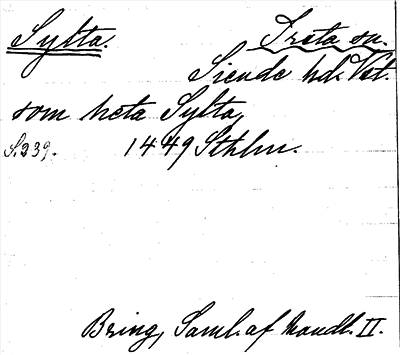 Sylta. Istra sn.
Siende hd. Vst.
som heta Sylta,
S. 239. 1449 Sthlm.
Bring, Saml. af handl. II.